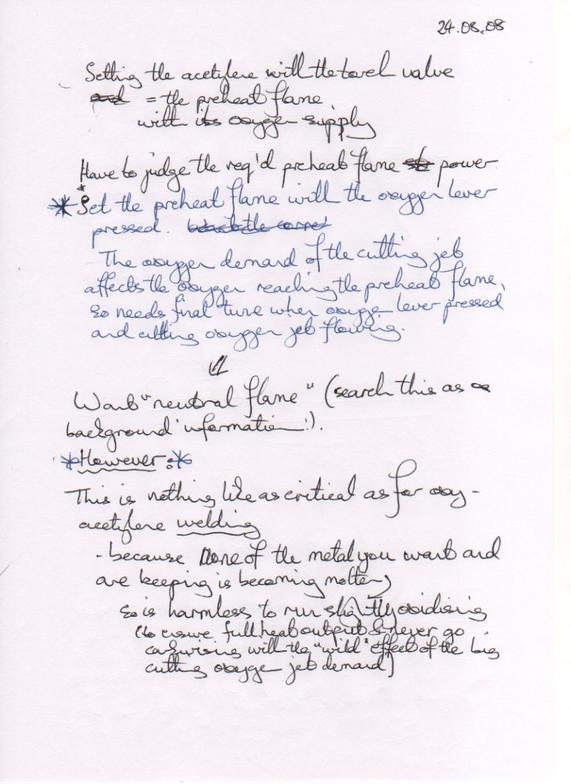 24.08.08
Setting the acetylene with the torch valve
and = the preheat flame
with its oxygen supply
Have to judge the req'd preheat flame power.
* Set the preheat flame with the oxygen lever
pressed.
The oxygen demand of the cutting jet
affects the oxygen reaching the preheat flame,
so needs final tune when oxygen lever pressed
and cutting oxygen jet flowing.
Want "neutral flame" (search this as
background information!).
*However:*
This is nothing like as critical as for oxy-
acetylene welding
- because none of the metal you want and
are keeping is becoming molten,
so is harmless to run slightly oxidising
(to ensure full heat output & never go
carburising with the "wild" effect of the big
cutting oxygen jet demand)